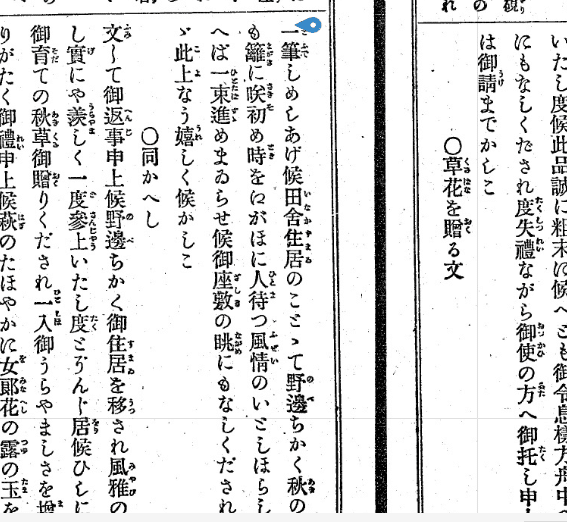 いたし度候此品誠に粗末に候へども御令息樣方舟中の
にもなしくだされ度失禮ながら御使の方へ御托し申
は御請までかしこ
○草花を贈る文
一筆しめしあげ候田舍住居のことゝて野邊ちかく秋の
も籬に咲初め時をにがほに人待つ風情のいとしほらし
へば一束進めまゐらせ候御座敷の眺にもなしくだされ
ゝ此上なう嬉しく候かしこ
○同かへし
文して御返事申上候野邊ちかく御住居を移され風雅の
し實にや羨しく一度參上いたし度とぞんじ居候ひしに
御育ての秋草御贈りくだされ一入御うらやましさを增
りがたく御禮申上候萩のたはやかに女郞花の露の玉を